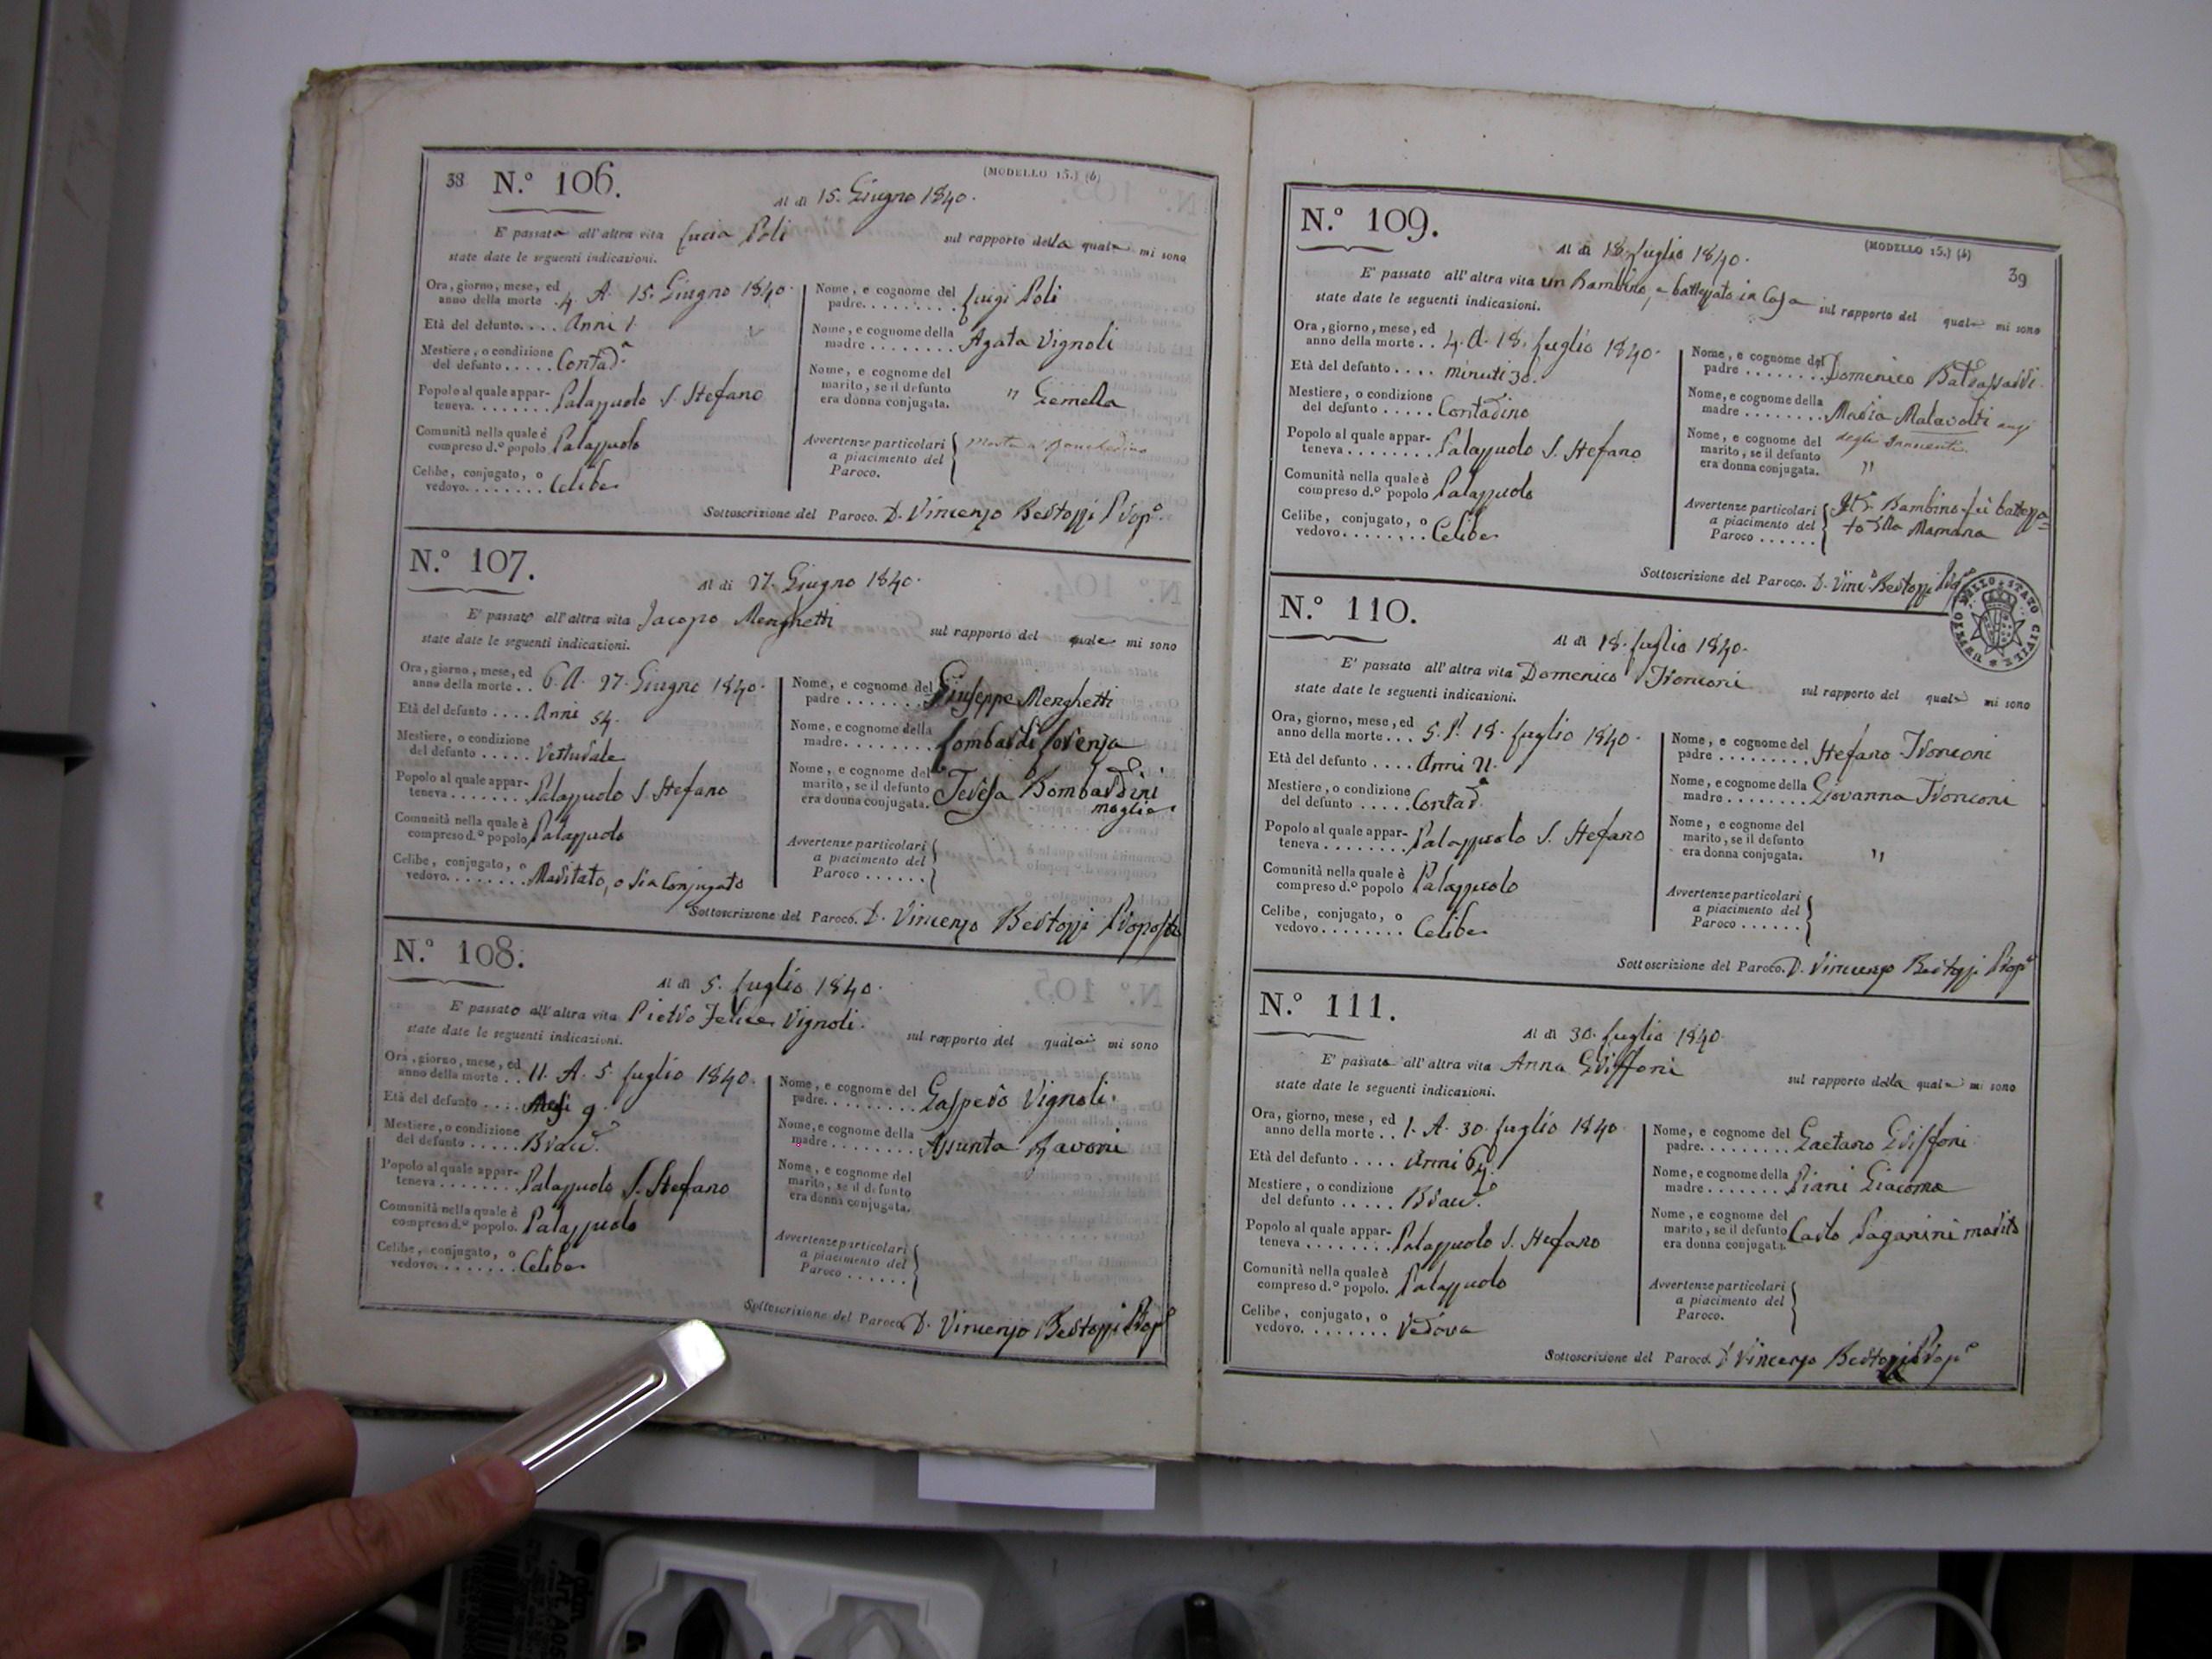 38 N.º 106. (MODELLO 15.) (b)
Al dì 15. Giugno 1840.
E' passata all'altra vita Lucia Poli sul rapporto della quale mi sono
state date le seguenti indicazioni.
Ora, giorno, mese, ed
anno della morte . 4. A. 15. Giugno 1840.
Età del defunto.... Anni 1.
Mestiere, o condizione
del defunto..... Contad.a
Popolo al quale appar-
teneva........ Palazzuolo S. Stefano
Comunità nella quale è
compreso d.º popolo Palazzuolo
Celibe, conjugato, o
vedovo........ Celibe
Nome, e cognome del
padre......... Luigi Poli
Nome, e cognome della
madre ........ Agata Vignoli
Nome, e cognome del
marito, se il defunto
era donna conjugata. " Gemella
Avvertenze particolari
a piacimento del
Paroco.
Sottoscrizione del Paroco. D. Vincenzo Bertozzi Prop.º
N.º 107.
Al dì 27. Giugno 1840.
E' passato all'altra vita Jacopo Menghetti sul rapporto del quale mi sono
state date le seguenti indicazioni.
Ora, giorno, mese, ed
anno della morte .. 6. A. 27. Giugno 1840.
Età del defunto .... Anni 54.
Mestiere, o condizione
del defunto ..... Vetturale
Popolo al quale appar-
teneva........ Palazzuolo S. Stefano
Comunità nella quale è
compreso d.º popolo Palazzuolo
Celibe, conjugato, o
vedovo........ Maritato, o sia Conjugato
Nome, e cognome del
padre ........ Giuseppe Menghetti
Nome, e cognome della
madre......... Lombardi Lorenza
Nome, e cognome del
marito, se il defunto
era donna conjugata. Teresa Bombardini
moglie
Avvertenze particolari
a piacimento del
Paroco ......
Sottoscrizione del Paroco. D. Vincenzo Bertozzi Proposto
N.º 108.
Al dì 5. Luglio 1840.
E' passato all'altra vita Pietro Felice Vignoli. sul rapporto del quale mi sono
state date le seguenti indicazioni.
Ora, giorno, mese, ed
anno della morte .. 11. A. 5. Luglio 1840.
Età del defunto .... Mesi 9.
Mestiere, o condizione
del defunto ..... Bracc.e
Popolo al quale appar-
teneva........ Palazzuolo S. Stefano
Comunità nella quale è
compreso d.º popolo. Palazzuolo
Celibe, conjugato, o
vedovo........ Celibe
Nome, e cognome del
padre......... Gaspero Vignoli.
Nome, e cognome della
madre ........ Assunta
Nome, e cognome del
marito, se il defunto
era donna conjugata.
Avvertenze particolari
a piacimento del
Paroco ......
Sottoscrizione del Paroco D. Vincenzo Bertozzi Prop.º
N.º 109. (MODELLO 15.) (b) 39
Al dì 18. Luglio 1840.
E' passato all'altra vita un Bambino, e battezzato in Casa sul rapporto del quale mi sono
state date le seguenti indicazioni.
Ora, giorno, mese, ed
anno della morte .. 4. A. 18. Luglio 1840.
Età del defunto .... minuti 30.
Mestiere, o condizione
del defunto ..... Contadino
Popolo al quale appar-
teneva........ Palazzuolo S. Stefano
Comunità nella quale è
compreso d.º popolo Palazzuolo
Celibe, conjugato, o
vedovo........ Celibe
Nome, e cognome del
padre ........ Domenico Baldassarri.
Nome, e cognome della
madre ........ Maria Malavolti anzi
degli Innocenti.
Nome, e cognome del
marito, se il defunto
era donna conjugata. "
Avvertenze particolari
a piacimento del
Paroco ...... Bambino fù battezza=
to dalla Mamana
Sottoscrizione del Paroco. D. Vinc.º Bertozzi Prop.º
UFFIZIO DELLO STATO CIVILE
N.º 110.
Al dì 18. Luglio 1840.
E' passato all'altra vita Domenico Tronconi sul rapporto del quale mi sono
state date le seguenti indicazioni.
Ora, giorno, mese, ed
anno della morte... 5. P. 18. Luglio 1840.
Età del defunto .... Anni 21.
Mestiere, o condizione
del defunto ..... Contad.e
Popolo al quale appar-
teneva........ Palazzuolo S. Stefano
Comunità nella quale è
compreso d.º popolo Palazzuolo
Celibe, conjugato, o
vedovo........ Celibe
Nome, e cognome del
padre ......... Stefano Tronconi
Nome, e cognome della
madre........ Giovanna Tronconi
Nome, e cognome del
marito, se il defunto
era donna conjugata. "
Avvertenze particolari
a piacimento del
Paroco ......
Sottoscrizione del Paroco. D. Vincenzo Bertozzi Prop.º
N.º 111.
Al dì 30. Luglio 1840.
E' passata all'altra vita Anna Griffoni sul rapporto della quale mi sono
state date le seguenti indicazioni.
Ora, giorno, mese, ed
anno della morte .. 1. A. 30. Luglio 1840.
Età del defunto .... Anni
Mestiere, o condizione
del defunto ..... Bracc.e
Popolo al quale appar-
teneva ........ Palazzuolo S. Stefano
Comunità nella quale è
compreso d.º popolo. Palazzuolo
Celibe, conjugato, o
vedovo........ Vedova
Nome, e cognome del
padre......... Gaetano Griffoni
Nome, e cognome della
madre ....... Piani Giacoma
Nome, e cognome del
marito, se il defunto
era donna conjugata. Carlo Paganini marito
Avvertenze particolari
a piacimento del
Paroco.
Sottoscrizione del Paroco. D. Vincenzo Bertozzi Prop.º